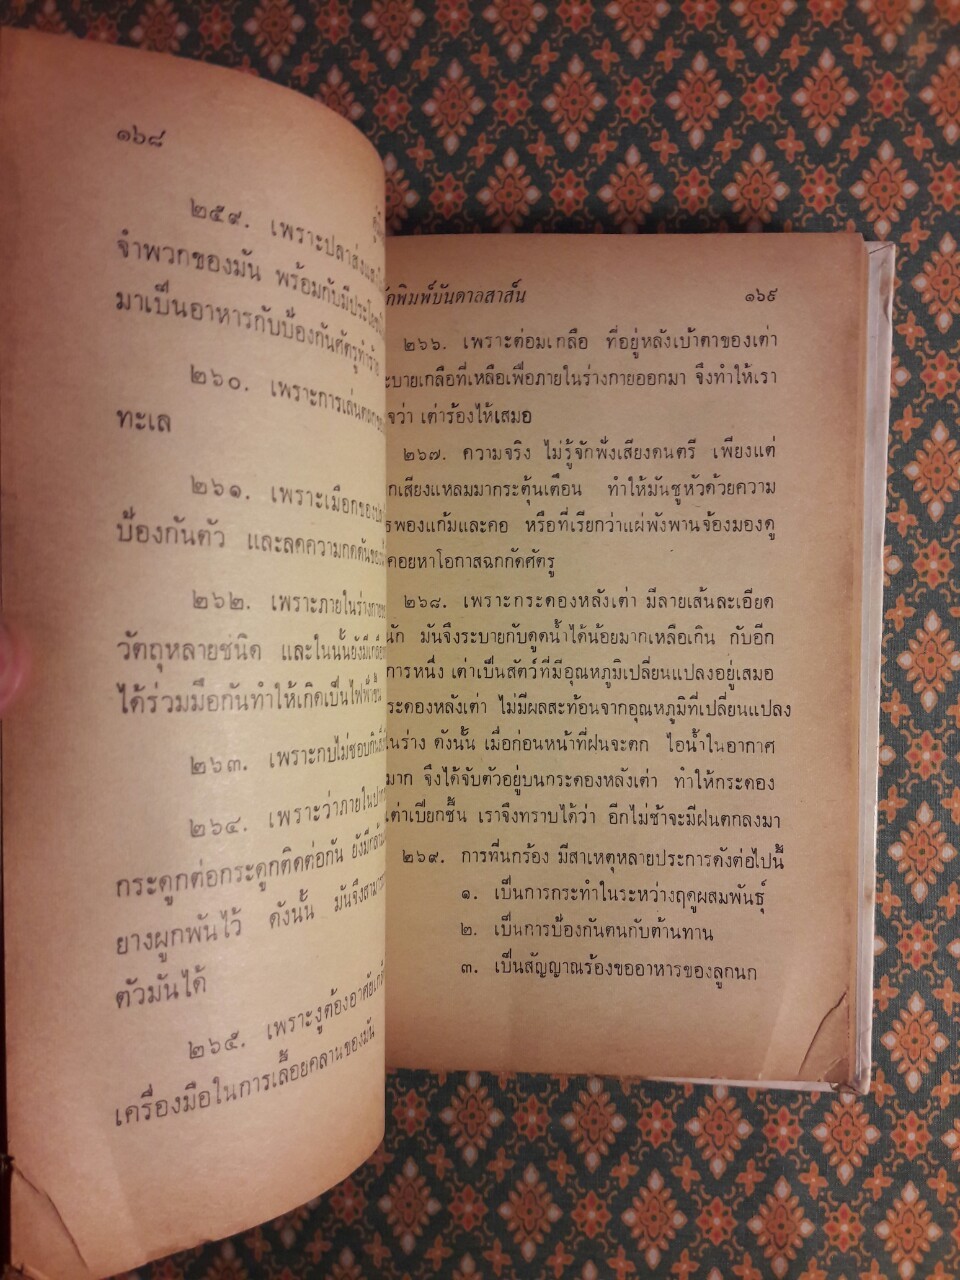 ๑๖๘
๒๕๙. เพราะปลาส่งแสง
จำพวกของมัน พร้อมกับมีประโยชน์
มาเป็นอาหารกับป้องกันศัตรูทำร้าย
๒๖๐. เพราะการเล่น
ทะเล
๒๖๑. เพราะเมือกของ
ป้องกันตัว และลดความกดดันของ
๒๖๒. เพราะภายในร่างกาย
วัตถุหลายชนิด และในนั้นยังมี
ได้ร่วมมือกันทำให้เกิดเป็นไฟฟ้าขึ้น
๒๖๓. เพราะกบไม่ชอบกิน
๒๖๔. เพราะว่าภายใน
กระดูกต่อกระดูกติดต่อกัน ยังมี
ยางผูกพันไว้ ดังนั้น มันจึงสามารถ
ตัวมันได้
๒๖๕. เพราะงูต้องอาศัย
เครื่องมือในการเลื้อยคลานของมัน
กพิมพ์บันดาลสาส์น ๑๖๙
๒๖๖. เพราะต่อมเกลือ ที่อยู่หลังเบ้าตาของเต่า
ะบายเกลือที่เหลือเพื่อภายในร่างกายออกมา จึงทำให้เรา
จว่า เต่าร้องไห้เสมอ
๒๖๗. ความจริง ไม่รู้จักฟังเสียงดนตรี เพียงแต่
กเสียงแหลมมากระตุ้นเตือน ทำให้มันชูหัวด้วยความ
ธพองแก้มและคอ หรือที่เรียกว่าแผ่พังพานจ้องมองดู
คอยหาโอกาสฉกกัดศัตรู
๒๖๘. เพราะกระดองหลังเต่า มีลายเส้นละเอียด
นัก มันจึงระบายกับดูดน้ำได้น้อยมากเหลือเกิน กับอีก
การหนึ่ง เต่าเป็นสัตว์ที่มีอุณหภูมิเปลี่ยนแปลงอยู่เสมอ
ระดองหลังเต่า ไม่มีผลสะท้อนจากอุณหภูมิที่เปลี่ยนแปลง
ในร่าง ดังนั้น เมื่อก่อนหน้าที่ฝนจะตก ไอน้ำในอากาศ
มาก จึงได้จับตัวอยู่บนกระดองหลังเต่า ทำให้กระดอง
เต่าเปียกชื้น เราจึงทราบได้ว่า อีกไม่ช้าจะมีฝนตกลงมา
๒๖๙. การที่นกร้อง มีสาเหตุหลายประการดังต่อไปนี้
๑. เป็นการกระทำในระหว่างฤดูผสมพันธุ์
๒. เป็นการป้องกันตนกับต้านทาน
๓. เป็นสัญญาณร้องขออาหารของลูกนก